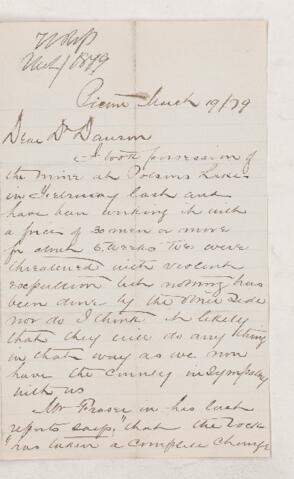 Pictou March 19/79
Dear Dr Dawson
I took possession of
the mine at Polsons Lake
in February last and
have been working it with
a force of 30 men or more
for about 6 weeks. We were
threatened with violent
expulsion but nothing has
been done by the other side
nor do I think it likely
that they will do anything
in that way as we now
have the County in sympathy
with us
Mr Fraser in his last
reports says, "that the rock
"has taken a complete change